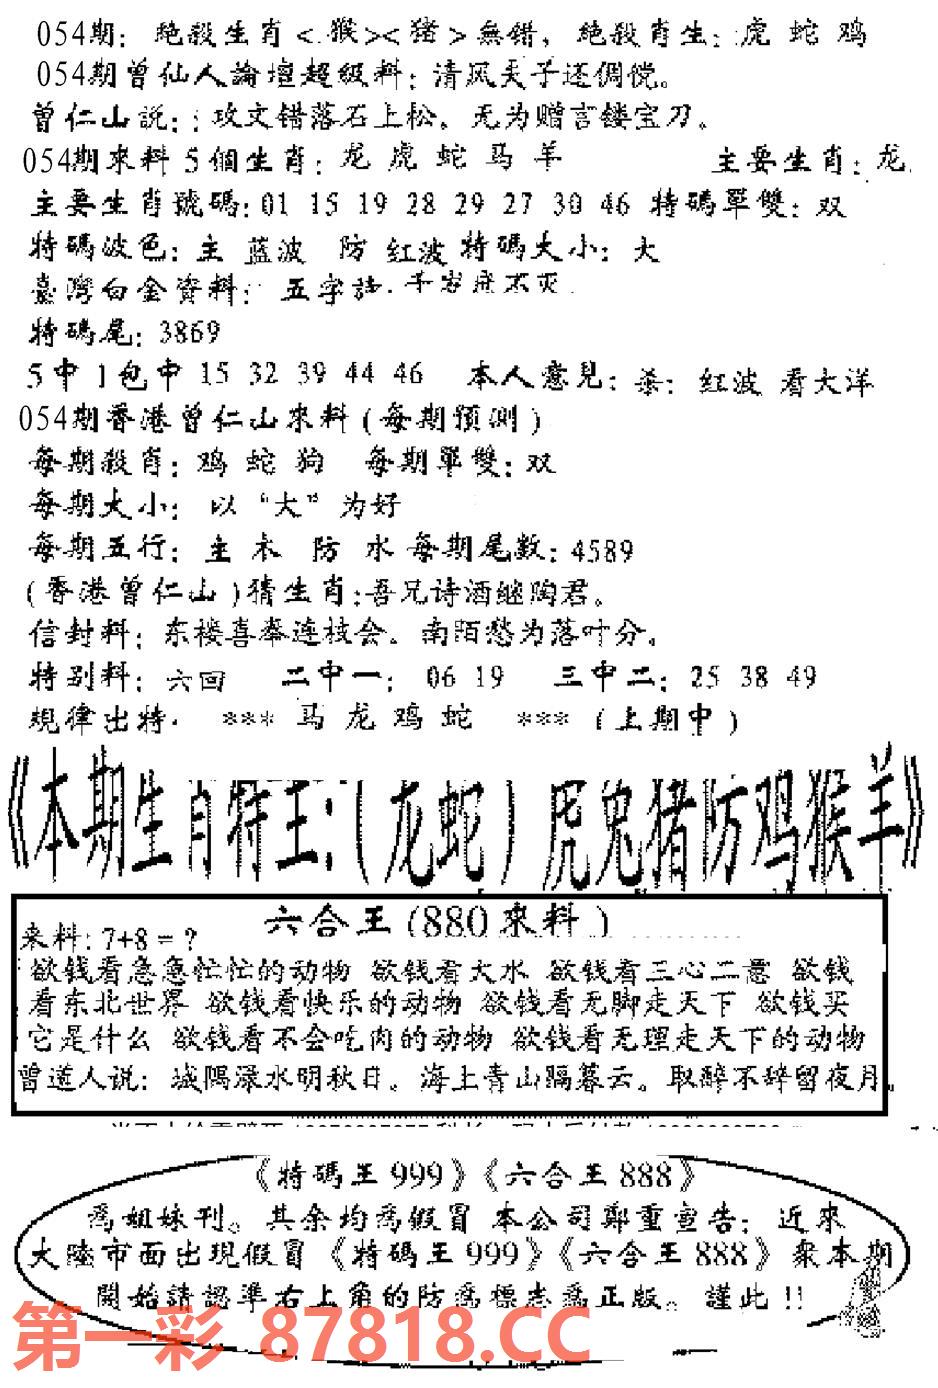 054期: 絶殺生肖<猴><猪>無错, 絶殺肖生: 虎 蛇 鸡
054期曾仙人論壇超級料: 清风天子还倜傥。
曾仁山説: 攻文错落石上松。无为赠言镂宝刀。
054期來料 5個生肖: 龙 虎 蛇 马 羊 主要生肖: 龙
主要生肖號碼: 01 15 19 28 29 27 30 46 特碼單雙: 双
特碼波色: 主 蓝波 防 红波 特碼大小: 大
臺灣白金資料: 五字詩. 千岁终不灭
特碼尾: 3869
5中1包中 15 32 39 44 46 本人意見: 杀: 红波 看大洋
054期香港曾仁山來料(每期預測)
每期殺肖: 鸡 蛇 狗 每期單雙: 双
每期大小: 以“大”为好
每期五行: 主 木 防 水 每期尾数: 4589
(香港曾仁山)猜生肖: 吾兄诗酒继陶君。
信封料: 东楼喜奉连枝会。南陌愁为落叶分。
特别料: 六回 二中一: 06 19 三中二: 25 38 49
規律出特. *** 马 龙 鸡 蛇 *** (上期中)
《本期生肖特王:(龙蛇)虎兔猪防鸡猴羊》
六合王(880來料)
来料: 7+8=?
欲钱看急急忙忙的动物 欲钱看大水 欲钱看三心二意 欲钱
看东北世界 欲钱看快乐的动物 欲钱看无脚走天下 欲钱买
它是什么 欲钱看不会吃肉的动物 欲钱看无理走天下的动物
曾道人说: 城隅渌水明秋日。海上青山隔暮云。取醉不辞留夜月。
《特碼王999》《六合王888》
爲姐妹刊。其余均爲假冒 本公司鄭重宣告: 近來
大陸市面出現假冒《特碼王999》《六合王888》衆本期
開始請認準右上角的防爲標志爲正版。謹此!!
第一彩 87818.CC